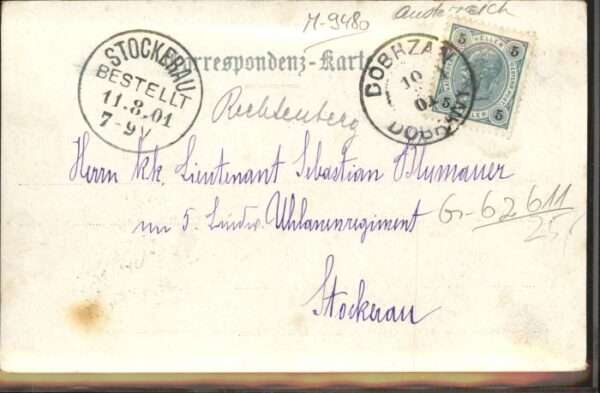 M-9480
Österreich
Correspondenz-Karte
STOCKERAU
BESTELLT
11.8.01
7-9V
DOBRZAN
10
01
5 HELLER 5
5 5
Rechtenberg
Herrn kk. Lieutenant Sebastian Blumauer
im 5. Landw. Uhlanenregiment
Gr-62611
Stockerau